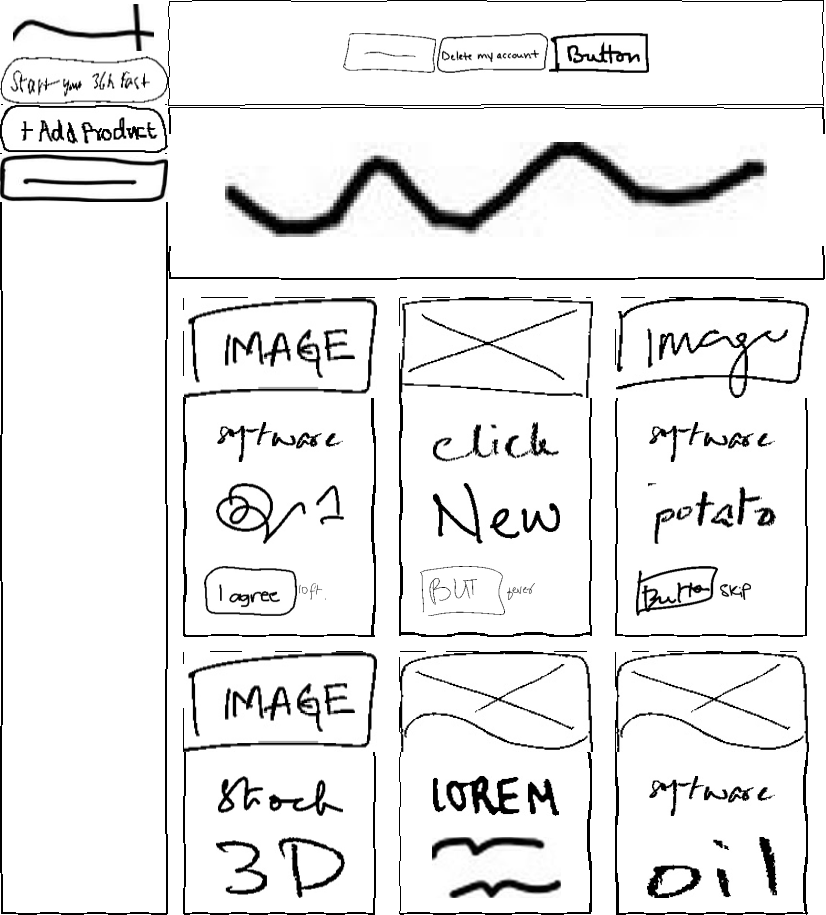 Start your 36h Fast
+ Add Product
Delete my account
Button
IMAGE
software
1
I agree
loft.
click
New
BUT
fever
Image
software
potato
Button
skip
IMAGE
Stock
3D
LOREM
software
oil